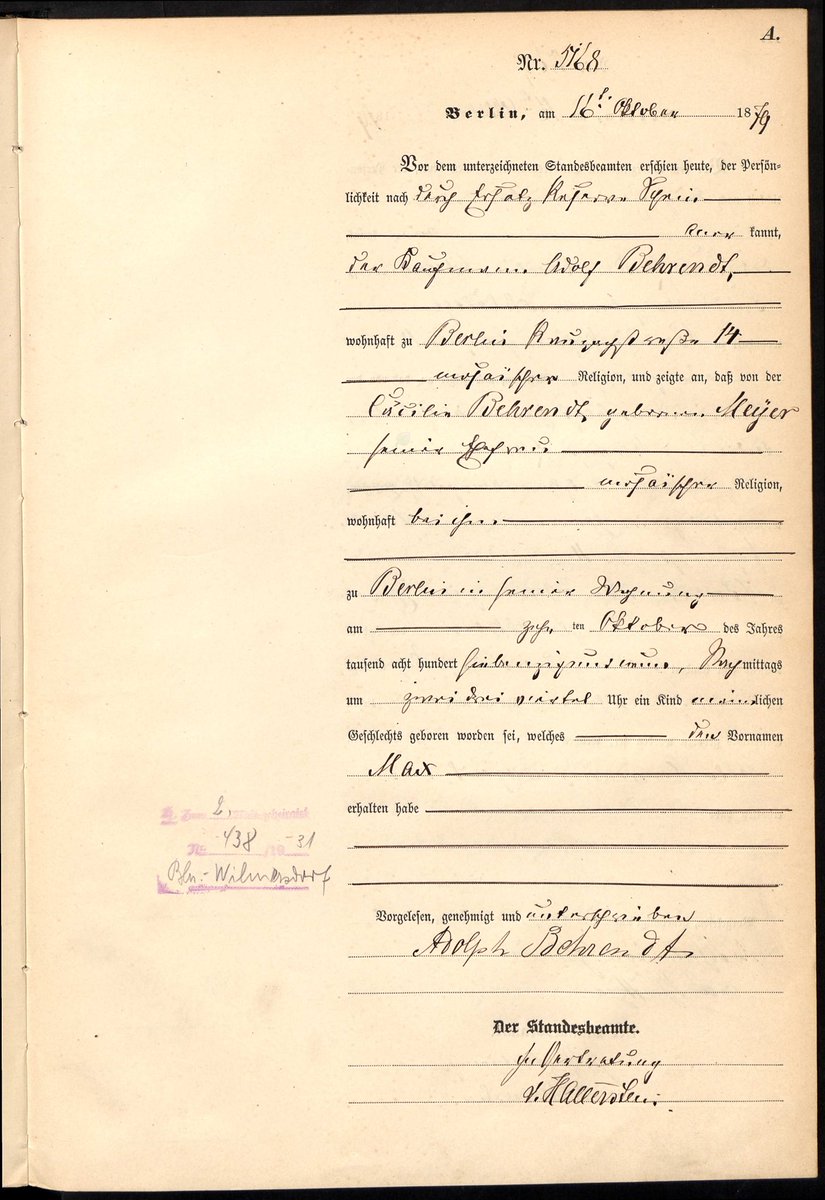 A.
Nr. 5168
Berlin, am 16t. Oktober 1879
Vor dem unterzeichneten Standesbeamten erschien heute, der Persön-
lichkeit nach durch Ersatz Reserve Schein
aner kannt,
der Kaufmann Adolf Behrendt,
wohnhaft zu Berlin Raupachstraße 14
mosaischer Religion, und zeigte an, daß von der
Cäcilie Behrendt, geborene Meyer
seiner Ehefrau
mosaischer Religion,
wohnhaft bei ihm
zu Berlin in seiner Wohnung
am zehn ten Oktober des Jahres
tausend acht hundert siebenzig und neun, Nachmittags
um zwei drei viertel Uhr ein Kind männlichen
Geschlechts geboren worden sei, welches den Vornamen
Max
erhalten habe
Zum 2.
No 438/19 31
Bln.-Wilmersdorf
Vorgelesen, genehmigt und unterschrieben
Adolph Behrendt
Der Standesbeamte.
In Vertretung
v. Hallerstein.